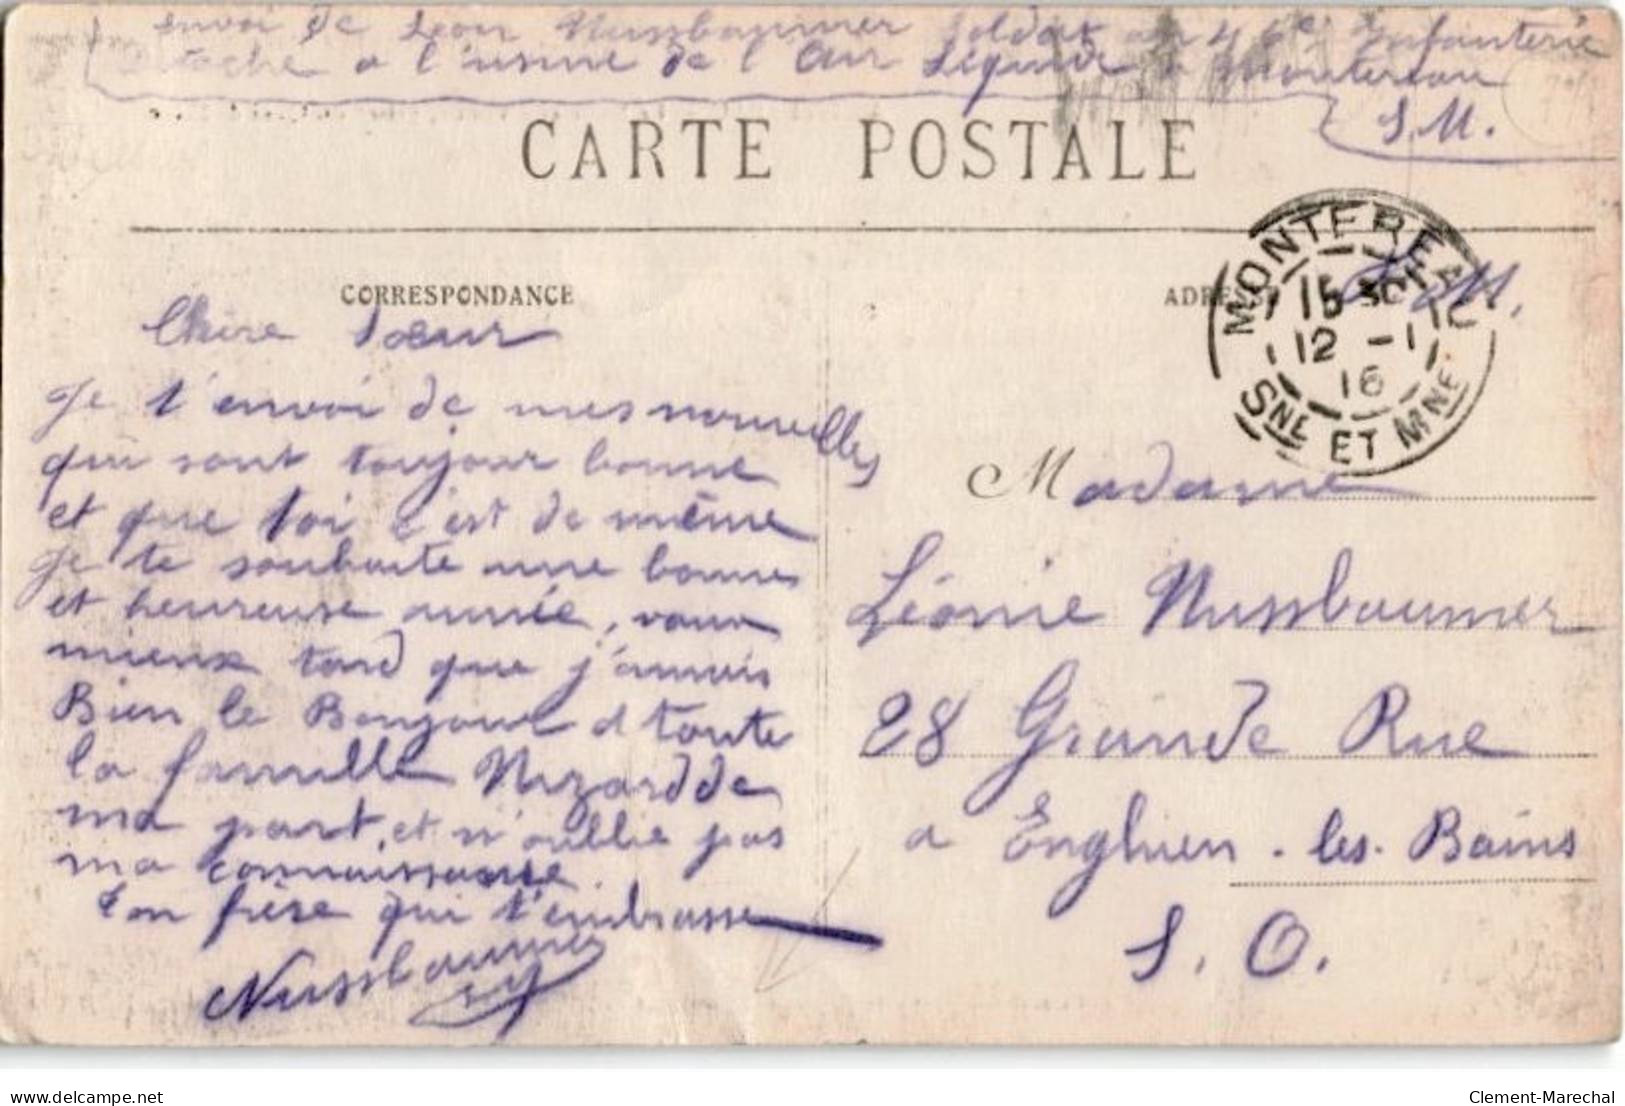 envoi de Léon Nussbaumer Soldat au 46e Infanterie
Attaché a l'usine de l'Air Liquide a Montereau
S.M.
CARTE POSTALE
CORRESPONDANCE
ADRESSE
S.M.
MONTEREAU
15 30
12 - 1
16
SNE ET MNE
Chère Sœur
Je t'envoi de mes nouvelles
qui sont toujour bonne
et que toi c'est de même
je te souhaite une bonne
et heureuse année, vaux
mieux tard que j'amais
Bien le Bonjour a toute
la famille Nizard de
ma part, et n'oublie pas
ma connaissance
ton frère qui t'embrasse
Nussbaumer
Madame
Léonie Nussbaumer
28 Grande Rue
a Enghien-les-Bains
S. O.
delcampe.net
Clement-Marechal